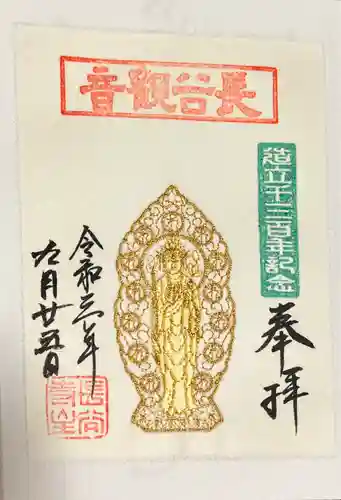 長谷観音
造立千三百年記念
奉拝
令和三年
九月廿五日
長谷
寺